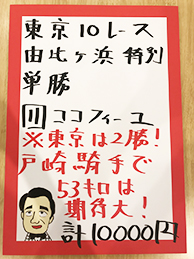 東京10レース
由比ヶ浜特別
単勝
⑪ココフィーユ
※東京は2勝!
戸崎騎手で
53キロは
期待大!
計10000円